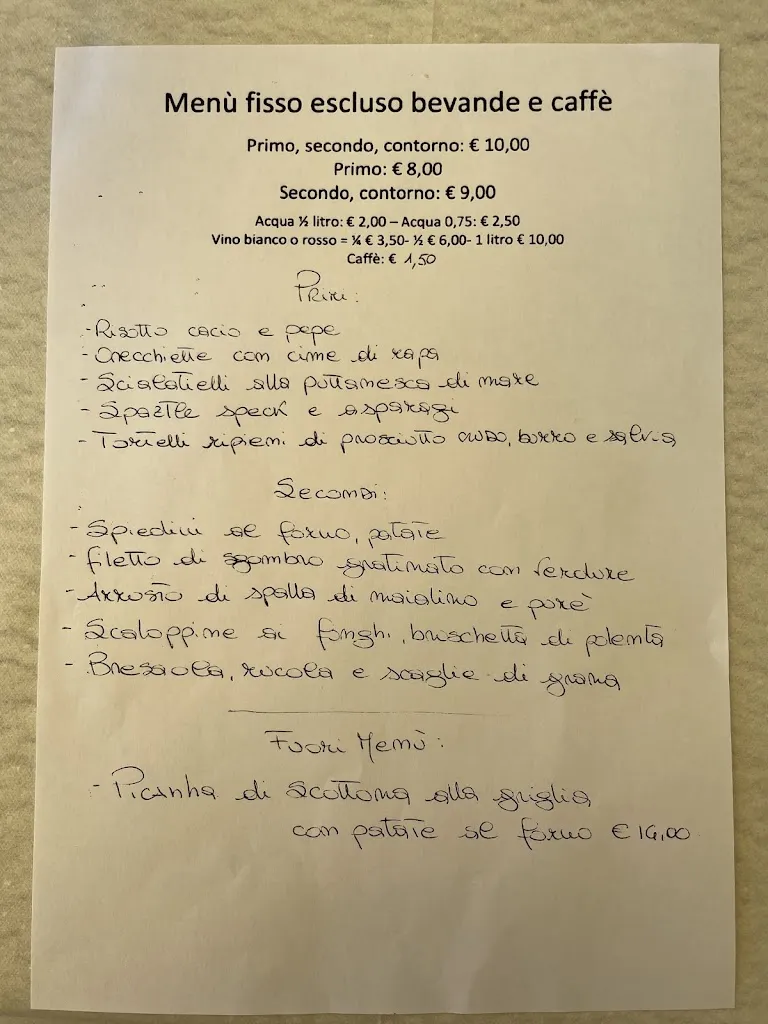 Menù fisso escluso bevande e caffè
Primo, secondo, contorno: € 10,00
Primo: € 8,00
Secondo, contorno: € 9,00
Acqua ½ litro: € 2,00 – Acqua 0,75: € 2,50
Vino bianco o rosso = ¼ € 3,50- ½ € 6,00- 1 litro € 10,00
Caffè: € 1,50
Primi:
- Risotto cacio e pepe
- Orecchiette con cime di rapa
- Scialatielli alla puttanesca di mare
- Spatzle speck e asparagi
- Tortelli ripieni di prosciutto crudo, burro e salvia
Secondi:
- Spiedini al forno, patate
- filetto di sgombro gratinato con verdure
- Arrosto di spalla di maialino e purè
- Scaloppine ai funghi, bruschetta di polenta
- Bresaola, rucola e scaglie di grana
Fuori Menù:
- Picanha di scottona alla griglia
con patate al forno € 14,00